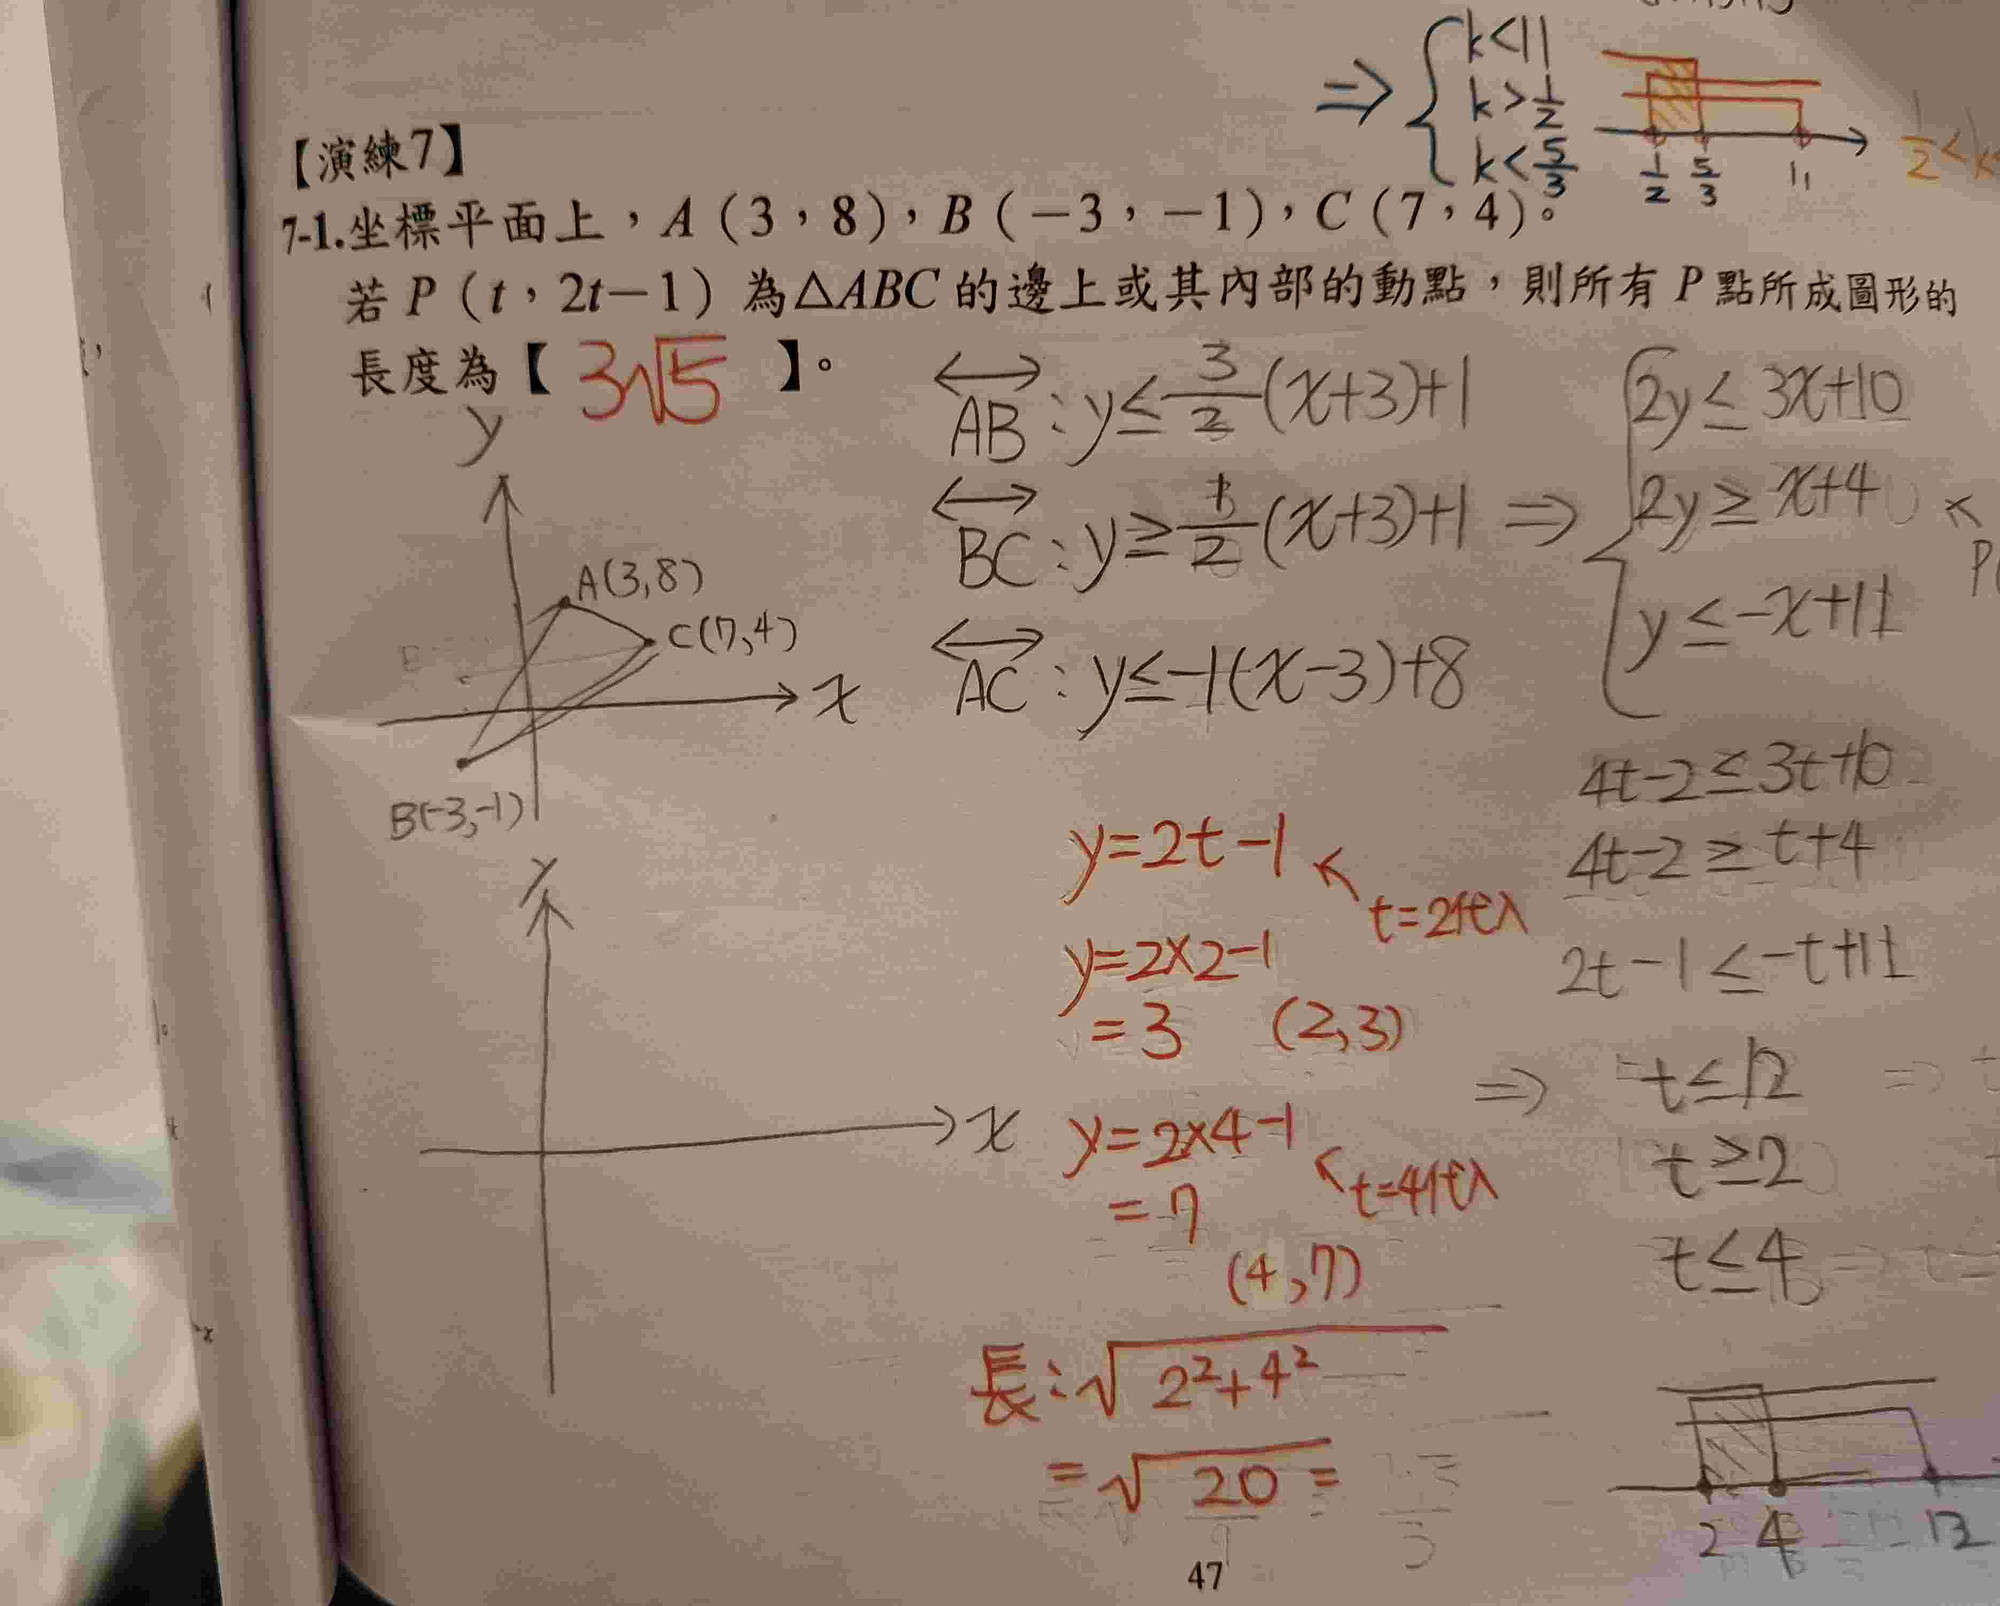 ⇒ { k<11
k>1/2
k<5/3
1/2 5/3 11
1/2<k
【演練7】
7-1.坐標平面上,A(3,8),B(-3,-1),C(7,4)。
若 P(t,2t-1)為△ABC的邊上或其內部的動點,則所有 P 點所成圖形的
長度為【 3√5 】。
y
A(3,8)
C(7,4)
x
B(-3,-1)
y
x
AB:y≤3/2(x+3)+1
BC:y≥1/2(x+3)+1 ⇒
AC:y≤-1(x-3)+8
2y≤3x+10
2y≥x+4
y≤-x+11
4t-2≤3t+10
4t-2≥t+4
2t-1≤-t+11
⇒ t≤12
t≥2
t≤4
2 4 12
y=2t-1
t=2代入
y=2×2-1
=3 (2,3)
y=2×4-1
t=4代入
=7
(4,7)
長:√2²+4²
=√20=
47